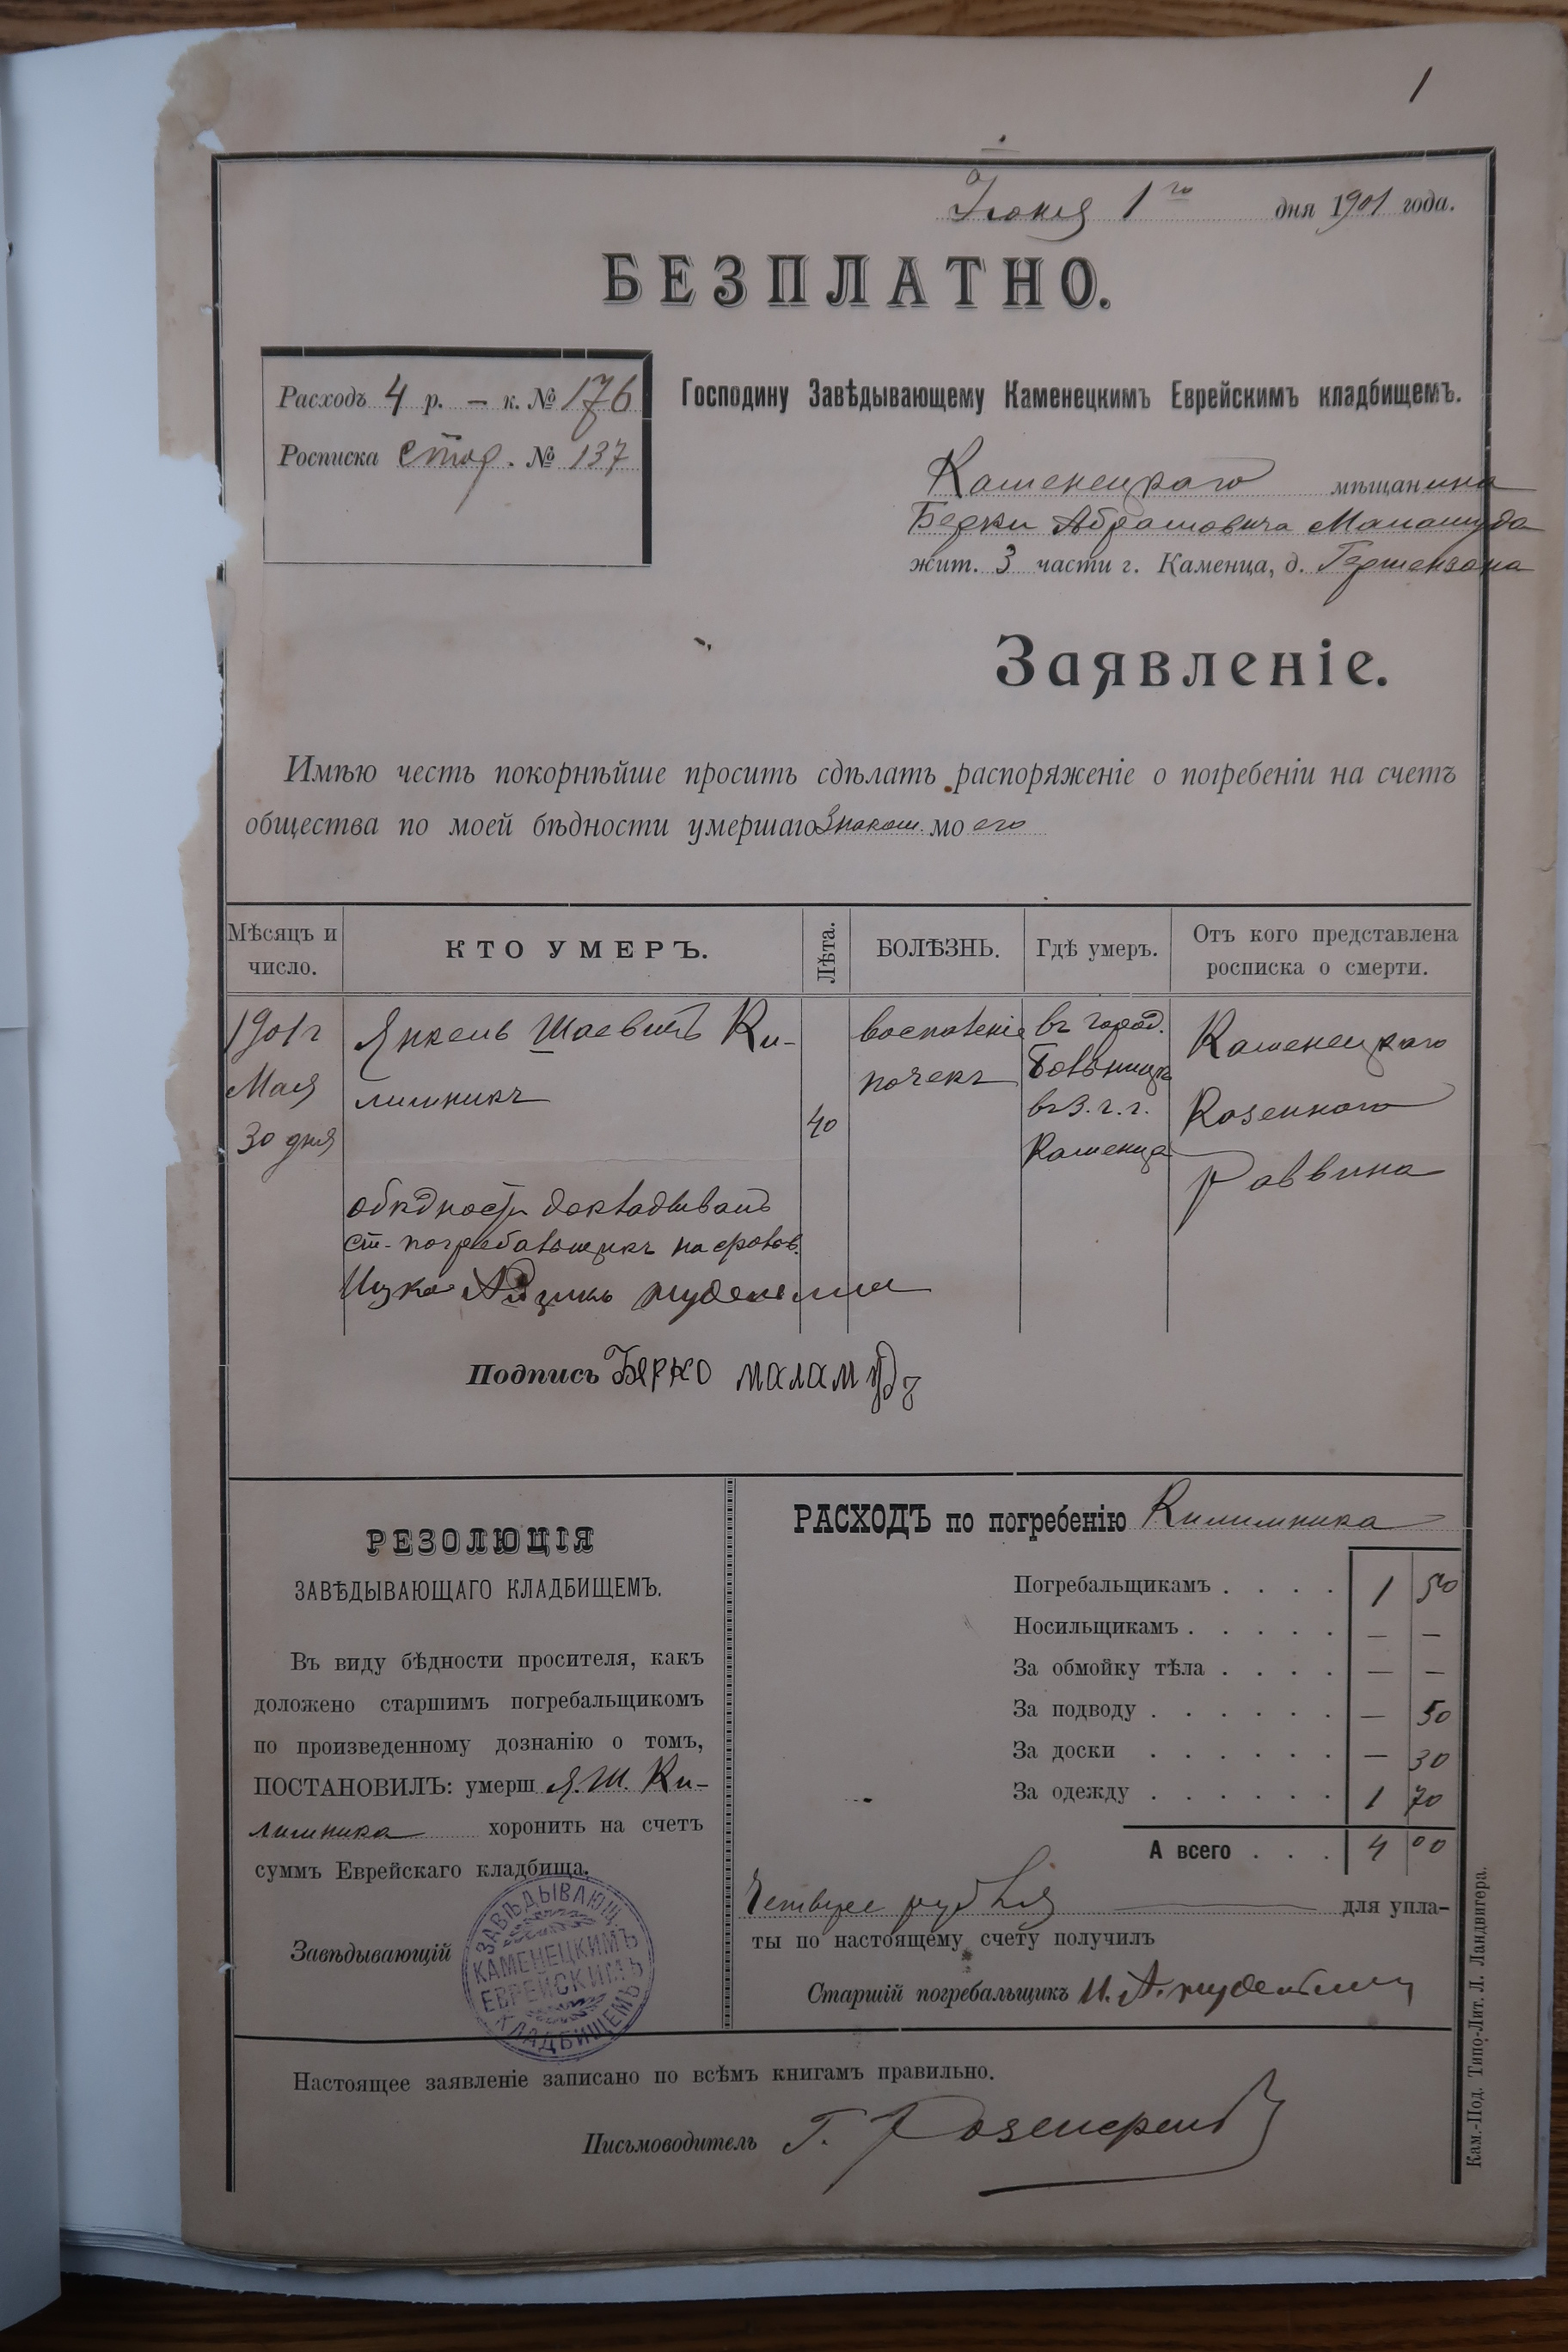 1
Іюня 1го дня 1901 года.
БЕЗПЛАТНО.
Расходъ 4 р. – к. № 176
Росписка стор. № 137
Господину Завѣдывающему Каменецкимъ Еврейскимъ кладбищемъ.
Каменецкаго мѣщанина
Берки Абрамовича Маламуда
жит. 3 части г. Каменца, д. Гершензона
Заявленіе.
Имѣю честь покорнѣйше просить сдѣлать распоряженіе о погребеніи на счетъ
общества по моей бѣдности умершаго знаком. моего
Мѣсяцъ и число.
КТО УМЕРЪ.
Лѣта.
БОЛѢЗНЬ.
Гдѣ умеръ.
Отъ кого представлена росписка о смерти.
1901 г
Мая
30 дня
Янкель Шаевичъ Ки-
лимникъ
40
воспаленіе
почекъ
въ город.
больницѣ
въ 3. ч. г.
Каменца
Каменецкаго
Казеннаго
Раввина
о бѣдности докладывалъ
ст. погребальщикъ
Ицко
Подпись Берко маламудъ
РЕЗОЛЮЦІЯ
ЗАВѢДЫВАЮЩАГО КЛАДБИЩЕМЪ.
Въ виду бѣдности просителя, какъ
доложено старшимъ погребальщикомъ
по произведенному дознанію о томъ,
ПОСТАНОВИЛЪ: умерш Я. Ш. Ки-
лимника хоронить на счетъ
суммъ Еврейскаго кладбища.
Завѣдывающій
ЗАВѢДЫВАЮЩ.
КАМЕНЕЦКИМЪ
ЕВРЕЙСКИМЪ
КЛАДБИЩЕМЪ
РАСХОДЪ по погребенію Килимника
Погребальщикамъ . . . . 1 50
Носильщикамъ . . . . . — —
За обмойку тѣла . . . . — —
За подводу . . . . . . — 50
За доски . . . . . . — 30
За одежду . . . . . . 1 70
А всего . . . 4 00
Четыре рубля для упла-
ты по настоящему счету получилъ
Старшій погребальщикъ И. А.
Настоящее заявленіе записано по всѣмъ книгамъ правильно.
Письмоводитель Г.
Кам.-Под. Типо-Лит. Л. Ландвигера.